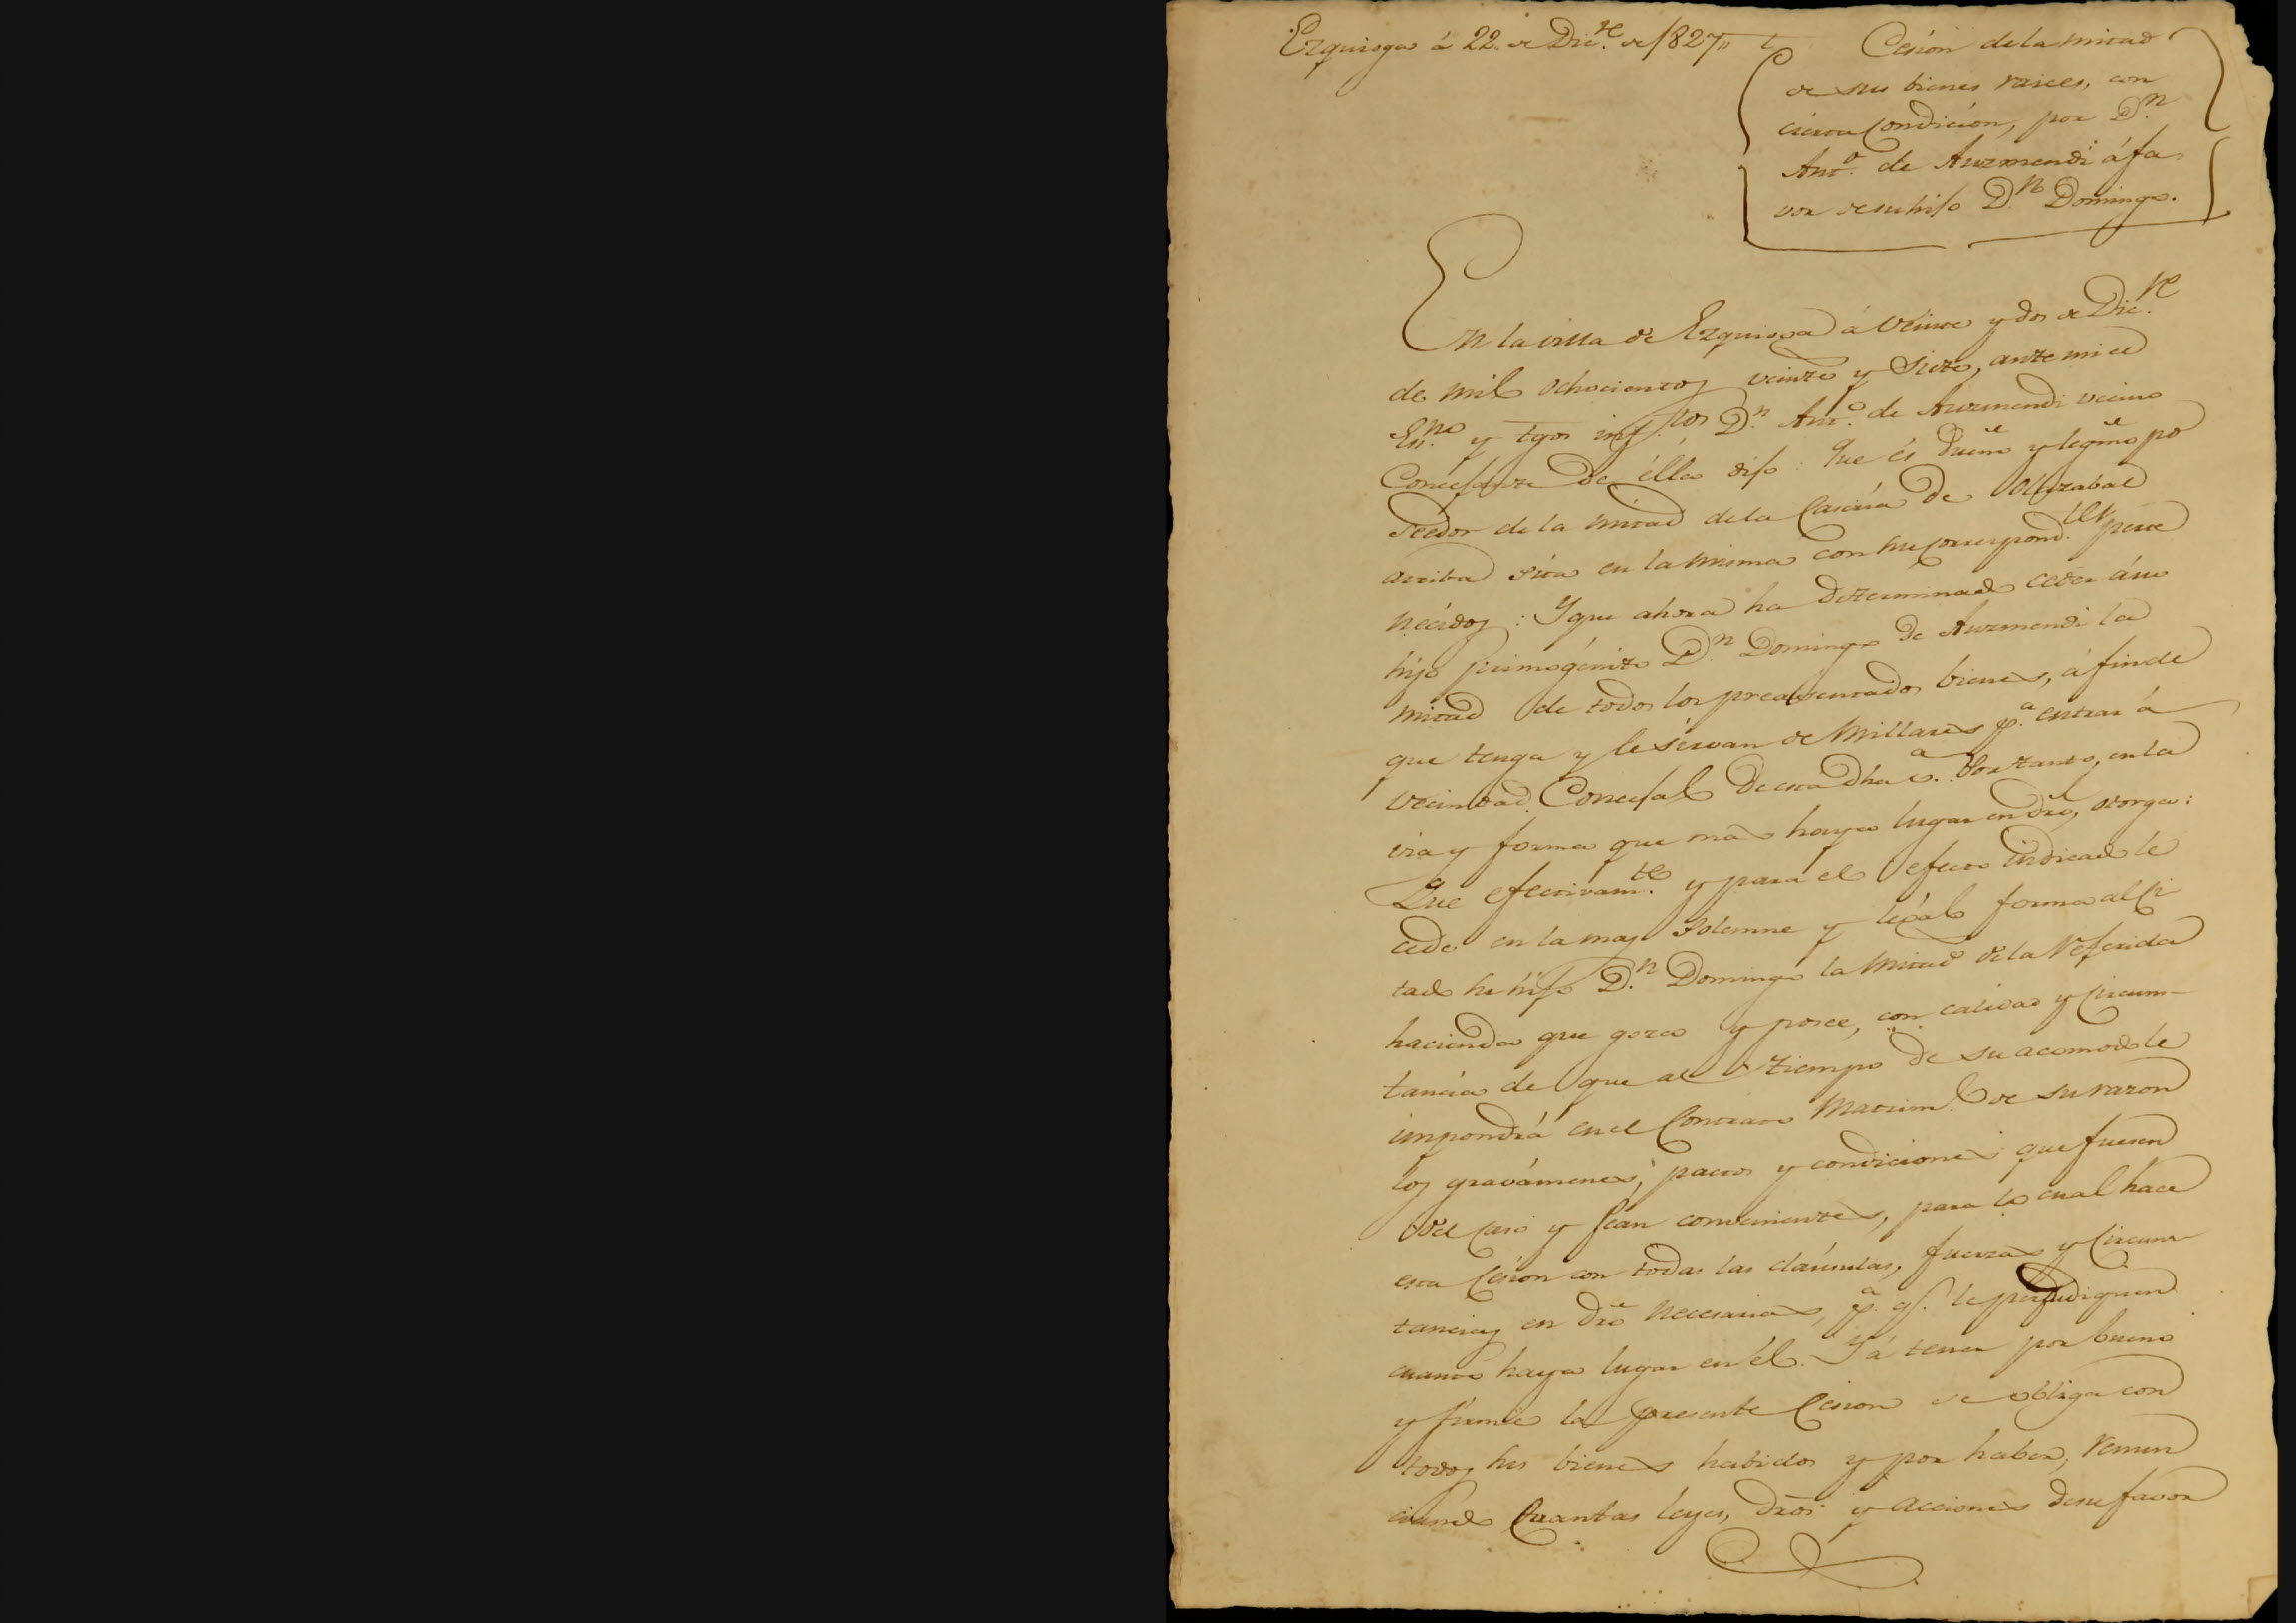 Ezquioga á 22 de Dic.re de 1827,,
Cesion de la mitad
de sus bienes raices, con
cierta Condicion, por D.n
Ant.o de Auzmendi á fa
vor de su hijo D.n Domingo.
En la villa de Ezquioga á Veinte y dos de Dic.re
de mil ochocientos veinte y Siete, ante mi el
Es.no y tgos inf.tos D.n Ant.o de Auzmendi vecino
Concejante de élla dijo: Que és dueño y legmo po
séédor de la mitad de la Caseria de Olazabal
arriba sita en la misma con sus correspond.tes perte
necidos: Y que ahora ha determinado ceder á su
hijo primogénito D.n Domingo de Auzmendi la
mitad de todos los preasentados bienes, á fin de
que tenga y le sirvan de Millares p.a entrar á
Vecindad Concejal de esta dha v.a Por tanto, en la
via y forma que mas haya lugar en dro, otorga:
Que efectivam.te y para el efecto indicado le
cede en la mas solemne y legal forma al ci
tado su hijo D.n Domingo la Mitad de la Referida
hacienda que goza y posee, con calidad y circuns-
tancia de que al tiempo de su acomodo le
impondrá en el Contrato Matrim.l de su razon
los gravámenes, pactos y condiciones que fuesen
del caso y sean convenientes, para lo cual hace
esta Cesion con todas las cláusulas, fuerzas y Circuns-
tancias en dro necesarias, p.a q.e le perjudiquen
cuanto haya lugar en él. Y á tener por bueno
y firme la presente Cesion se obliga con
todos sus bienes habidos y por haber, renun
ciando Cuantas leyes, dros y acciones de su favor